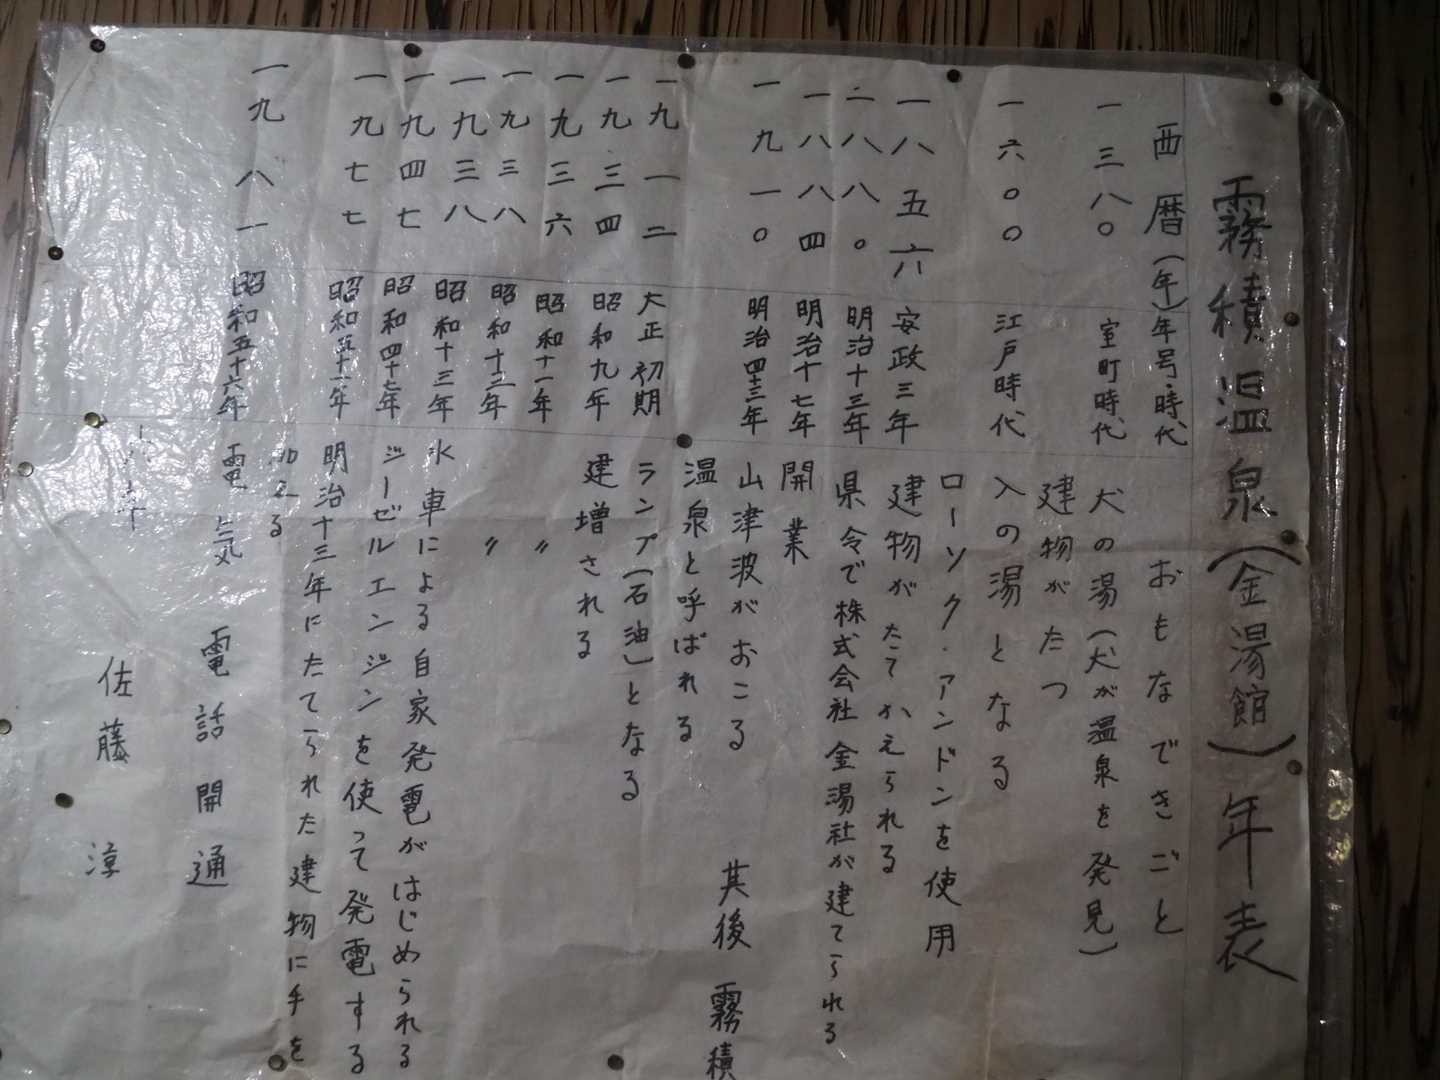 霧積温泉(金湯館)年表
西暦(年) 年号・時代 おもなできごと
一三八〇 室町時代 犬の湯(犬が温泉を発見)
建物がたつ
一六〇〇 江戸時代 入の湯となる
ローソク・アンドンを使用
一八五六 安政三年 建物がたてかえられる
一八八〇 明治十三年 県令で株式会社金湯社が建てられる
一八八四 明治十七年 開業
一九一〇 明治四十三年 山津波がおこる 其後 霧積
温泉と呼ばれる
一九一二 大正初期 ランプ(石油)となる
一九三四 昭和九年 建増される
一九三六 昭和十一年 〃
一九三八 昭和十三年 〃
一九三八 昭和十三年 水車による自家発電がはじめられる
一九四七 昭和四十七年 ジーゼルエンジンを使って発電する
一九七七 昭和五十一年 明治十三年にたてられた建物に手を
加える
一九八一 昭和五十六年 電気 電話開通
佐藤 淳